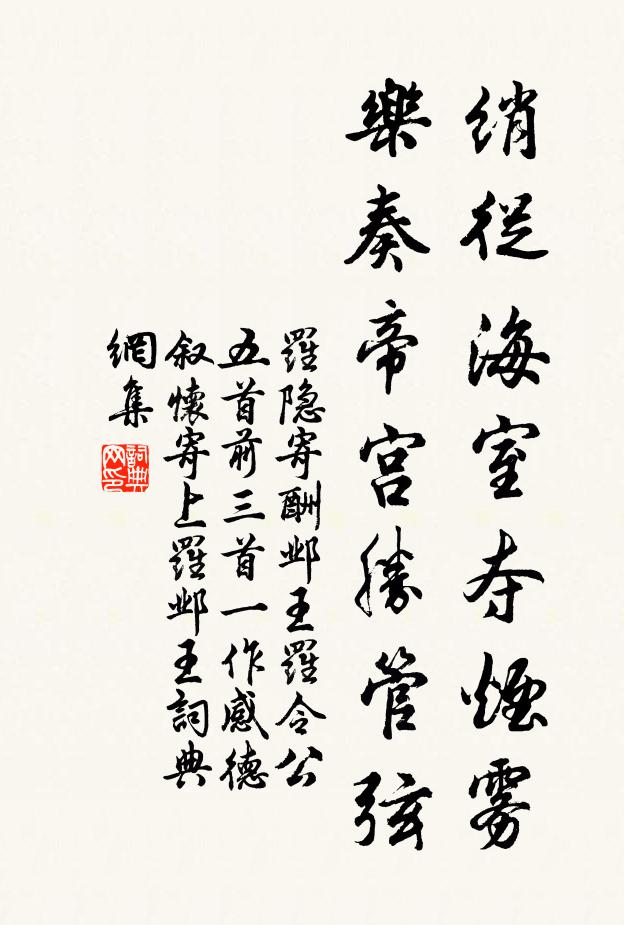 綃從海室夺煙雾
樂奏帝宮勝管弦
羅隐寄酬邺王羅令公
五首前三首一作感德
叙懷寄上羅邺王詞典
網集
詞典网印